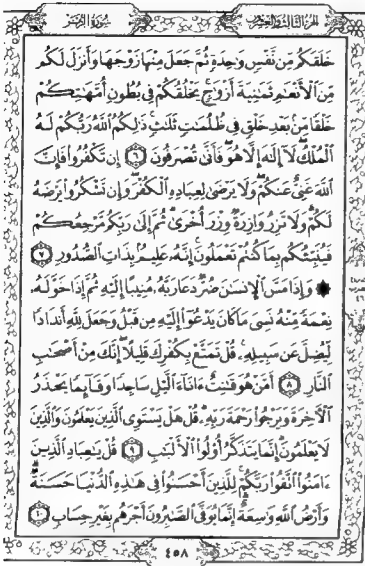 الجزء الثالث والعشرون
سورة الزمر
خَلَقَكُم مِّن نَّفْسٍ وَٰحِدَةٍ ثُمَّ جَعَلَ مِنْهَا زَوْجَهَا وَأَنزَلَ لَكُم
مِّنَ ٱلْأَنْعَٰمِ ثَمَٰنِيَةَ أَزْوَٰجٍ ۚ يَخْلُقُكُمْ فِى بُطُونِ أُمَّهَٰتِكُمْ
خَلْقًا مِّنۢ بَعْدِ خَلْقٍ فِى ظُلُمَٰتٍ ثَلَٰثٍ ۚ ذَٰلِكُمُ ٱللَّهُ رَبُّكُمْ لَهُ
ٱلْمُلْكُ ۖ لَآ إِلَٰهَ إِلَّا هُوَ ۖ فَأَنَّىٰ تُصْرَفُونَ ٦ إِن تَكْفُرُوا۟ فَإِنَّ
ٱللَّهَ غَنِىٌّ عَنكُمْ ۖ وَلَا يَرْضَىٰ لِعِبَادِهِ ٱلْكُفْرَ ۖ وَإِن تَشْكُرُوا۟ يَرْضَهُ
لَكُمْ ۗ وَلَا تَزِرُ وَازِرَةٌ وِزْرَ أُخْرَىٰ ۗ ثُمَّ إِلَىٰ رَبِّكُم مَّرْجِعُكُمْ
فَيُنَبِّئُكُم بِمَا كُنتُمْ تَعْمَلُونَ ۚ إِنَّهُۥ عَلِيمٌۢ بِذَاتِ ٱلصُّدُورِ ٧
۞ وَإِذَا مَسَّ ٱلْإِنسَٰنَ ضُرٌّ دَعَا رَبَّهُۥ مُنِيبًا إِلَيْهِ ثُمَّ إِذَا خَوَّلَهُۥ
نِعْمَةً مِّنْهُ نَسِىَ مَا كَانَ يَدْعُوٓا۟ إِلَيْهِ مِن قَبْلُ وَجَعَلَ لِلَّهِ أَندَادًا
لِّيُضِلَّ عَن سَبِيلِهِۦ ۚ قُلْ تَمَتَّعْ بِكُفْرِكَ قَلِيلًا ۖ إِنَّكَ مِنْ أَصْحَٰبِ
ٱلنَّارِ ٨ أَمَّنْ هُوَ قَٰنِتٌ ءَانَآءَ ٱلَّيْلِ سَاجِدًا وَقَآئِمًا يَحْذَرُ
ٱلْءَاخِرَةَ وَيَرْجُوا۟ رَحْمَةَ رَبِّهِۦ ۗ قُلْ هَلْ يَسْتَوِى ٱلَّذِينَ يَعْلَمُونَ وَٱلَّذِينَ
لَا يَعْلَمُونَ ۗ إِنَّمَا يَتَذَكَّرُ أُو۟لُوا۟ ٱلْأَلْبَٰبِ ٩ قُلْ يَٰعِبَادِ ٱلَّذِينَ
ءَامَنُوا۟ ٱتَّقُوا۟ رَبَّكُمْ ۚ لِلَّذِينَ أَحْسَنُوا۟ فِى هَٰذِهِ ٱلدُّنْيَا حَسَنَةٌ ۗ
وَأَرْضُ ٱللَّهِ وَٰسِعَةٌ ۗ إِنَّمَا يُوَفَّى ٱلصَّٰبِرُونَ أَجْرَهُم بِغَيْرِ حِسَابٍ ١٠
٤٥٨